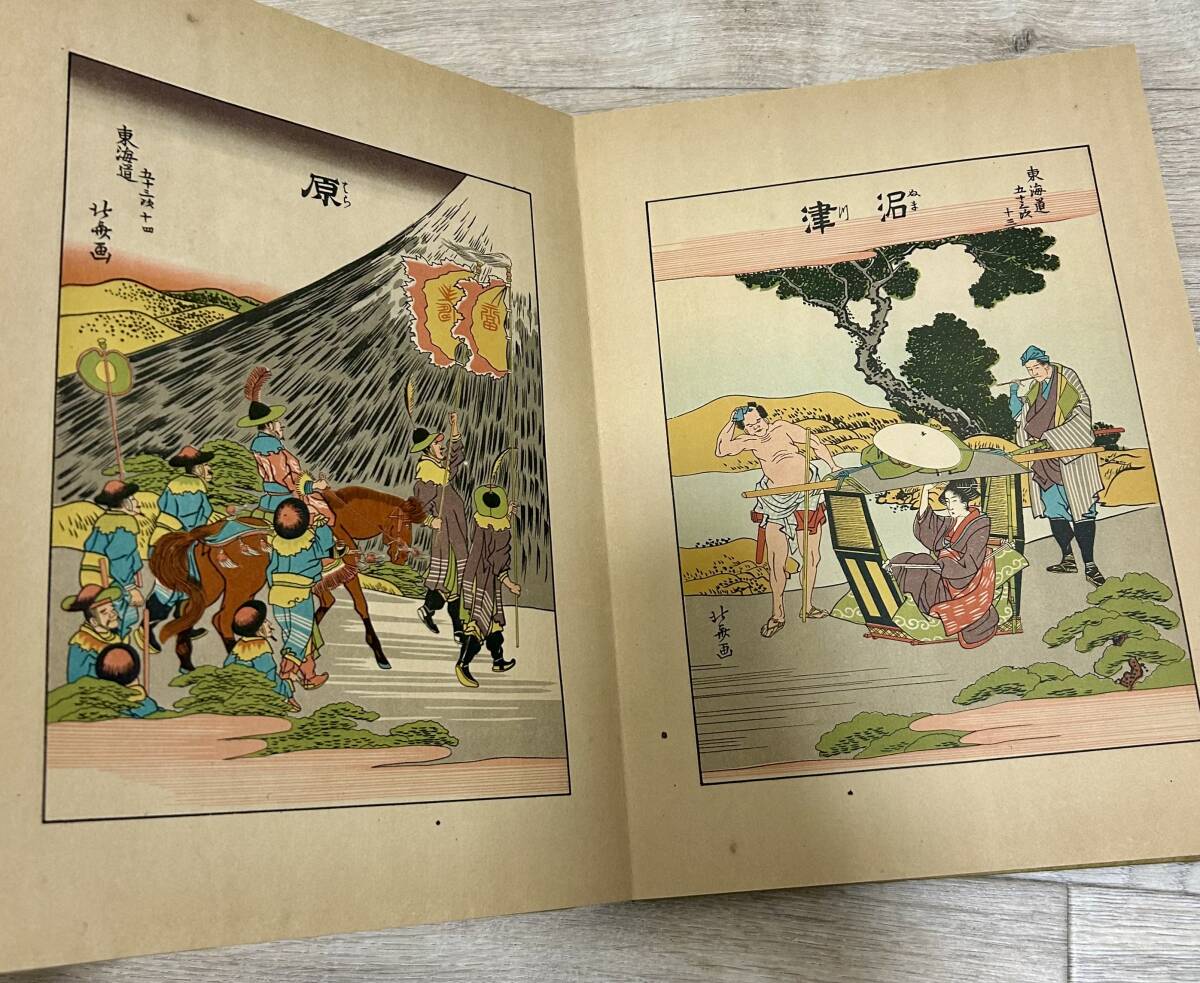 東海道
五十三次
十三
沼津
ぬま
北斎画
原
はら
東海道
五十三次 十四
北斎画